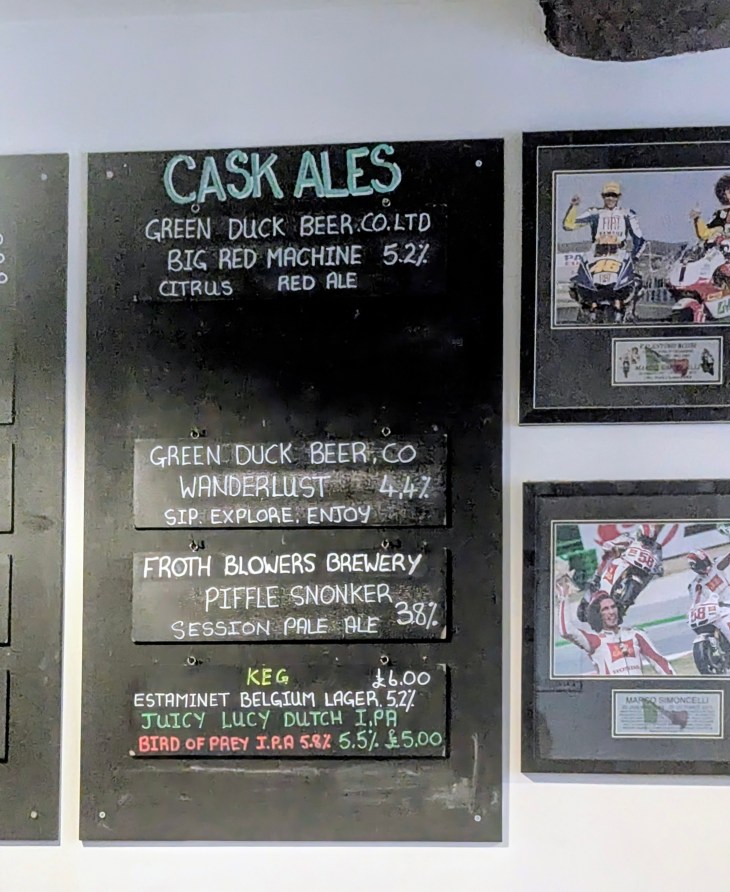 CASK ALES
GREEN DUCK BEER.CO.LTD
BIG RED MACHINE 5.2%
CITRUS RED ALE
GREEN DUCK BEER.CO
WANDERLUST 4.4%
SIP. EXPLORE. ENJOY
FROTH BLOWERS BREWERY
PIFFLE SNONKER
SESSION PALE ALE 3.8%
KEG £6.00
ESTAMINET BELGIUM LAGER 5.2%
JUICY LUCY DUTCH I.P.A
BIRD OF PREY I.P.A 5.8% 5.5% £5.00
FIAT
46
1
58
58
MARCO SIMONCELLI